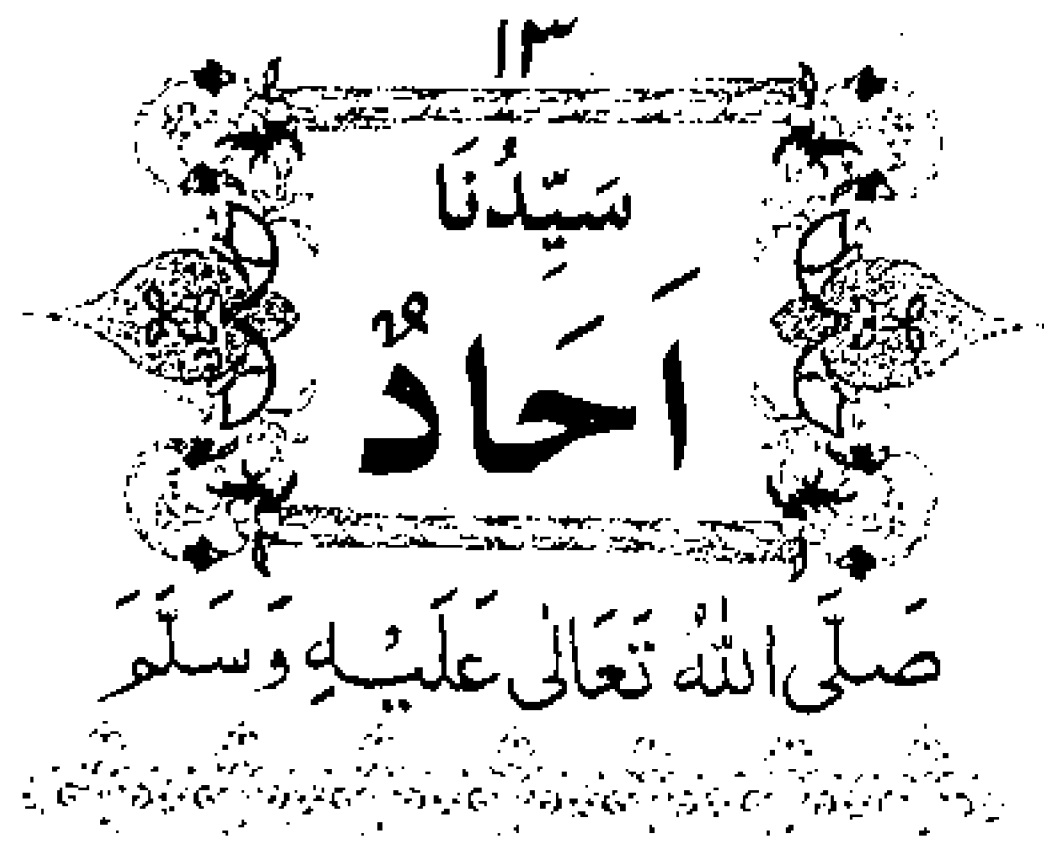 ١٣
سَيِّدُنَا
اَحَادٌ
صَلَّى اللهُ تَعَالٰى عَلَيْهِ وَسَلَّمَ